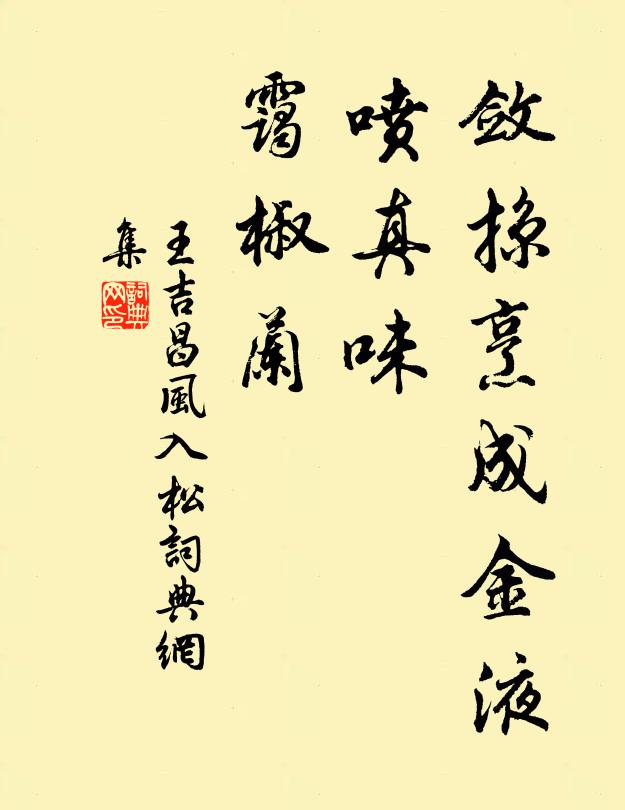 斂掠烹成金液
噴真味
靄椒蘭
王吉昌風入松詞典網
集
詞典
网印